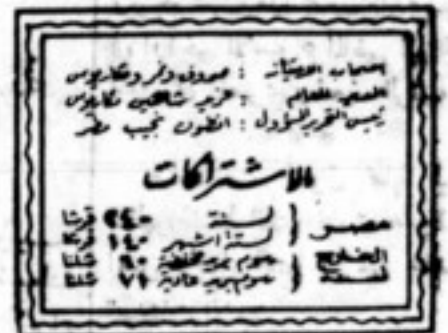 اصحاب الامتياز : صروف ونمر ومكاريوس
المدير العام : عزيز شاهين مكاريوس
رئيس التحرير المسؤول : انطون نجيب مطر
الاشتراكات
مصر لسنة ٢٤٠ قرشا
لستة اشهر ١٤٠ قرشا
الخارج لسنة رسوم بريد مخفضة ٩٠ شلنا
رسوم بريد عادية ٧٦ شلنا